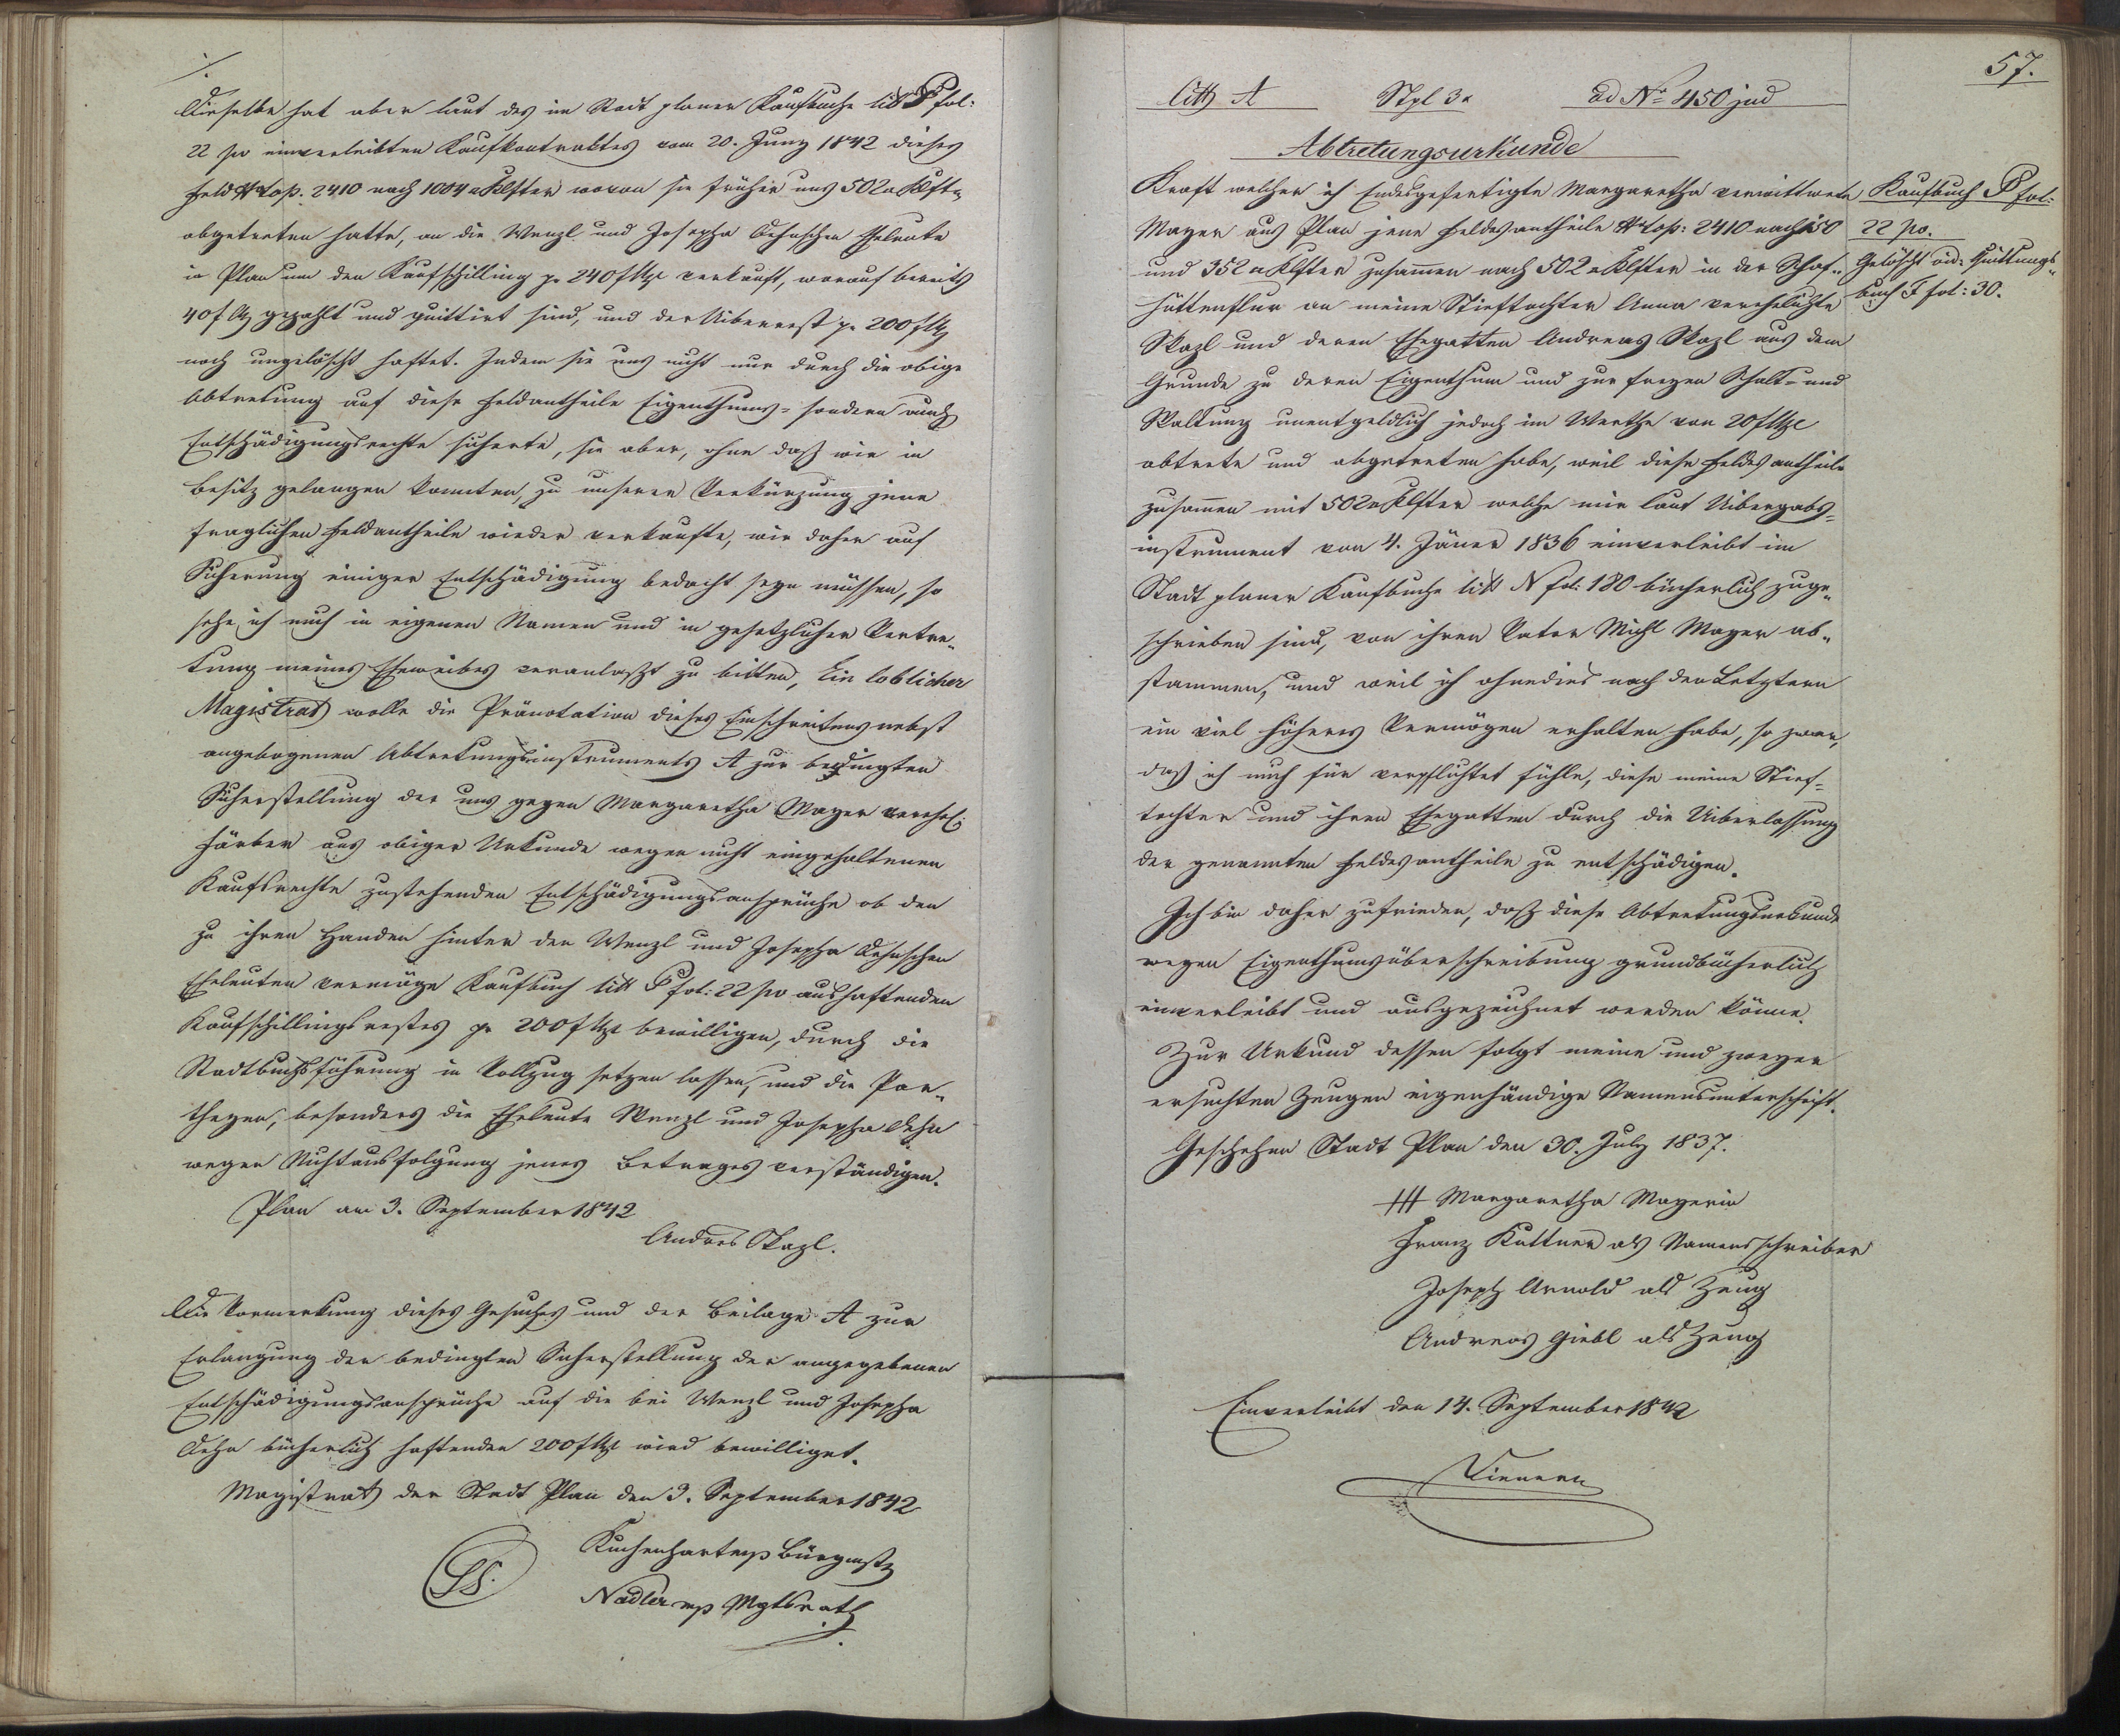 ./.
Dieselbe hat aber laut des im Stadt planer Kaufbuche litt P fol:
22 po einverleibten Kaufkontraktes vom 20. Juny 1842 dieses
Feld N top. 2410 nach 1004 □ Klfter wovon sie früher uns 502 □ Klft.
abgetreten hatte, an die Wenzl und Josepha Dehnschen Eheleute
in Plan um den Kaufschilling pr 240 f Mze verkauft, worauf bereits
40 f Mz gezahlt und quittirt sind, und der Uiberrest pr 200 f Mz
noch ungelöscht haftet. Indem sie uns nicht nur durch die obige
Abtretung auf diese Feldantheile Eigenthums- sondern auch
Entschädigungsrechte sicherte, sie aber, ohne daß wir in
Besitz gelangen konnten, zu unserer Verkürzung jene
fraglichen Feldantheile wieder verkaufte, wir daher auf
Sicherung einiger Entschädigung bedacht seyn müssen, so
sehe ich mich in eigenen Namen und in gesetzlicher Vertre„
tung meines Eheweibes veranlaßt zu bitten, Ein loblicher
Magistrat wolle die Pränotation dieses Einschreitens nebst
angebogenen Abtretungsinstruments A zur bedingten
Sicherstellung der uns gegen Margaretha Mayer verehel:
Färber aus obiger Urkunde wegen nicht eingehaltenen
Kaufsrechte zustehenden Entschädigungsansprüche ob den
zu ihren Handen hinter den Wenzl und Josepha Dehnschen
Eheleuten vermöge Kaufbuch litt P fol: 22 po aushaftenden
Kaufschillingsrestes pr 200 f Mze bewilligen, durch die
Stadtbuchsführung in Vollzug setzen lassen, und die Par„
theyen, besonders die Eheleute Wenzl und Josepha Dehn
wegen Nichtausfolgung jenes Betrages verständigen.
Plan am 3. September 1842
Andres Skazl.
Die Vormerkung dieses Gesuches und der Beilage A zur
Erlangung der bedingten Sicherstellung der angegebenen
Entschädigungsansprüche auf die bei Wenzl und Josepha
Dehn bücherlich haftenden 200 f Mze wird bewilliget.
Magistrat der Stadt Plan den 3. September 1842
LS.
Kuchenhart mp Bürgmstr
Nadler mp Mgtsrath
57.
litt A Stpl 3 x ad No 450 jud
Abtretungsurkunde
Kraft welcher ich Endesgefertigte Margaretha verwittwete
Mayer aus Plan jene Feldesantheile N top: 2410 nach 150
und 352 □ Klfter zusammen nach 502 □ Klfter in der Schaf„
hüttenflur an meine Stieftochter Anna verehelichte
Skazl und deren Ehegatten Andreas Skazl aus dem
Grunde zu deren Eigenthum und zur freyen Schalt- und
Waltung unentgeldlich jedoch im Werthe von 20 f Mze
abtrete und abgetreten habe, weil diese Feldesantheile
zusammen mit 502 □ Klfter welche mir laut Uibergabs-
instrument von 4. Jäner 1836 einverleibt im
Stadt planer Kaufbuche litt N fol: 180 bücherlich zuge„
schrieben sind, von ihren Vater Michl Mayer ab„
stammen, und weil ich ohnedies nach den Letztern
ein viel höheres Vermögen erhalten habe, so zwar,
daß ich mich für verpflichtet fühle, diese meine Stief-
tochter und ihren Ehegatten durch die Uiberlassung
der genannten Feldesantheile zu entschädigen.
Ich bin daher zufrieden, daß diese Abtretungsurkunde
wegen Eigenthumsüberschreibung grundbücherlich
einverleibt und ausgezeichnet werden könne.
Zur Urkund dessen folgt meine und zweyer
ersuchten Zeugen eigenhändige Namensunterschrift.
Geschehen Stadt Plan den 30. July 1837.
+++ Margaretha Mayerin
Franz Kuttner als Namensschreiber
Joseph Arnold als Zeug
Andreas Giebl als Zeug
Einverleibt den 14. September 1842
Kaufbuch P fol:
22 po.
Gelöscht vid: Quittungs„
buch F fol: 30.